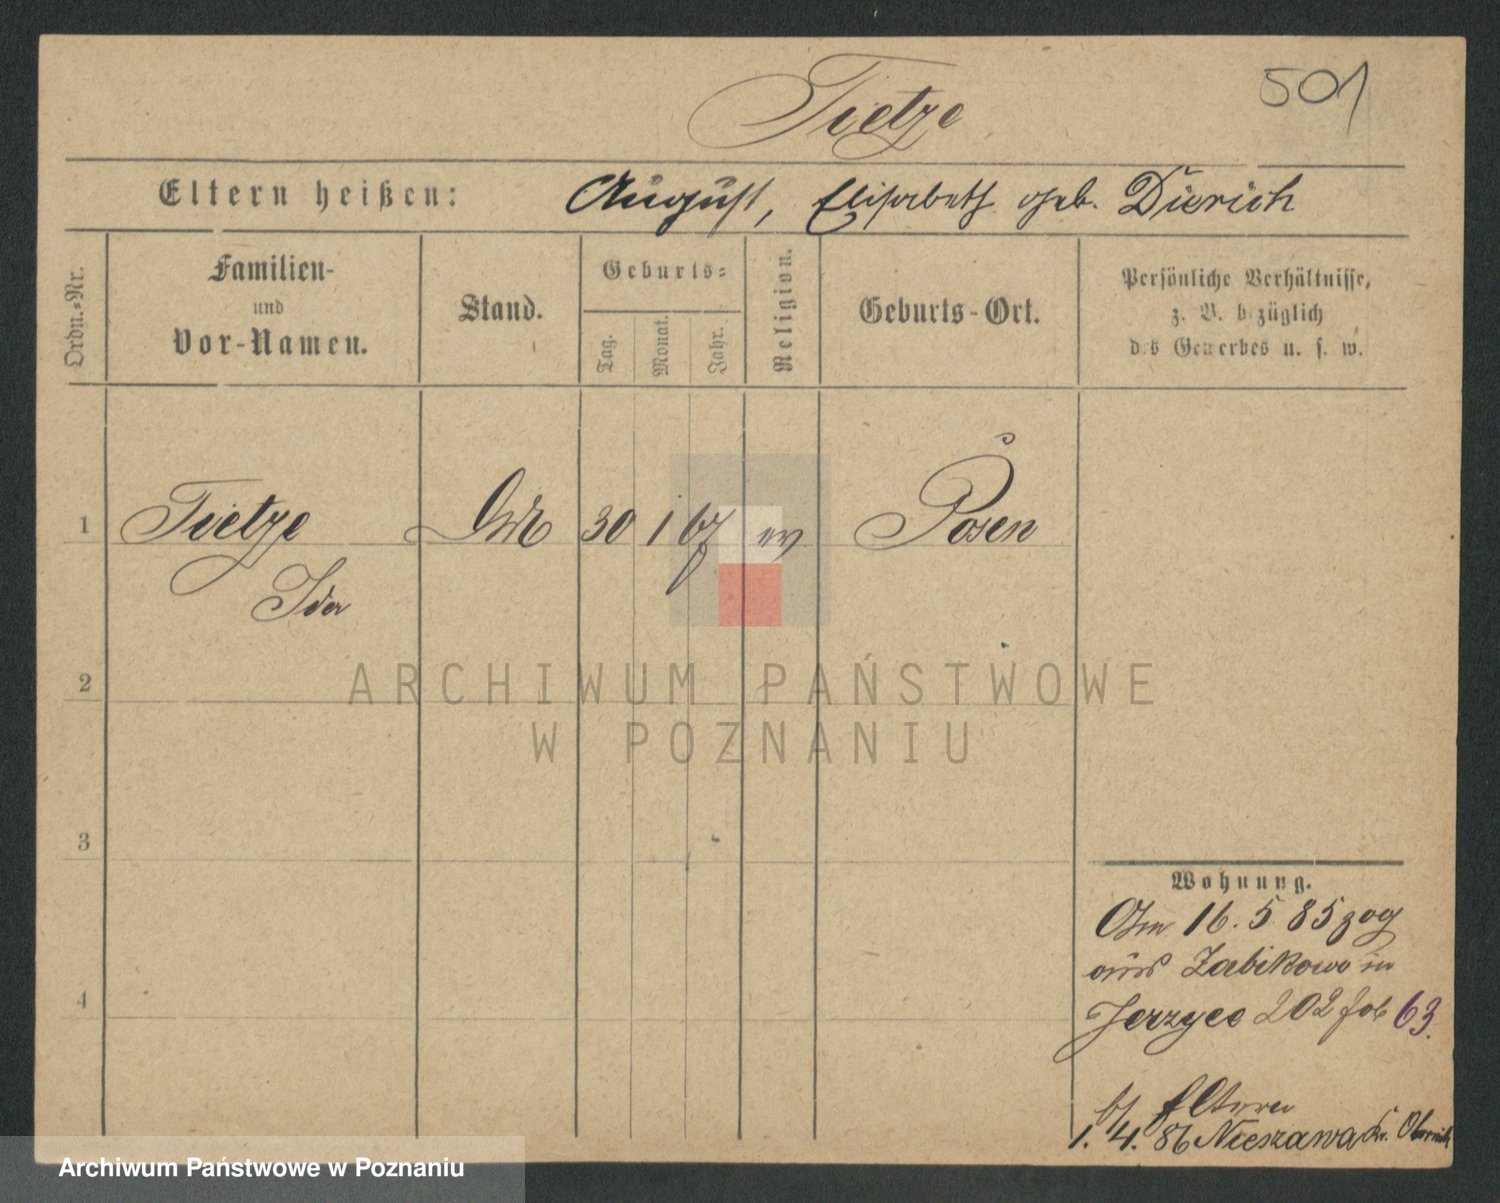 Tietze
501
Eltern heißen: August, Elisabeth geb. Dierich
Ordn.-Nr.
Familien-
und
Vor-Namen.
Stand.
Geburts-
Tag.
Monat.
Jahr.
Religion.
Geburts-Ort.
Persönliche Verhältnisse,
z. B. bezüglich
des Gewerbes u. s. w.
1 Tietze 30 1 67 ev Posen
Ida
2
3
4
Wohnung.
Am 16. 5. 85 zog
aus Zabikowo in
Jerzyce 202 fol 63.
b/ Eltern
1. 4. 86 Nieszawa Kr. Obornik
ARCHIWUM PAŃSTWOWE
W POZNANIU
Archiwum Państwowe w Poznaniu